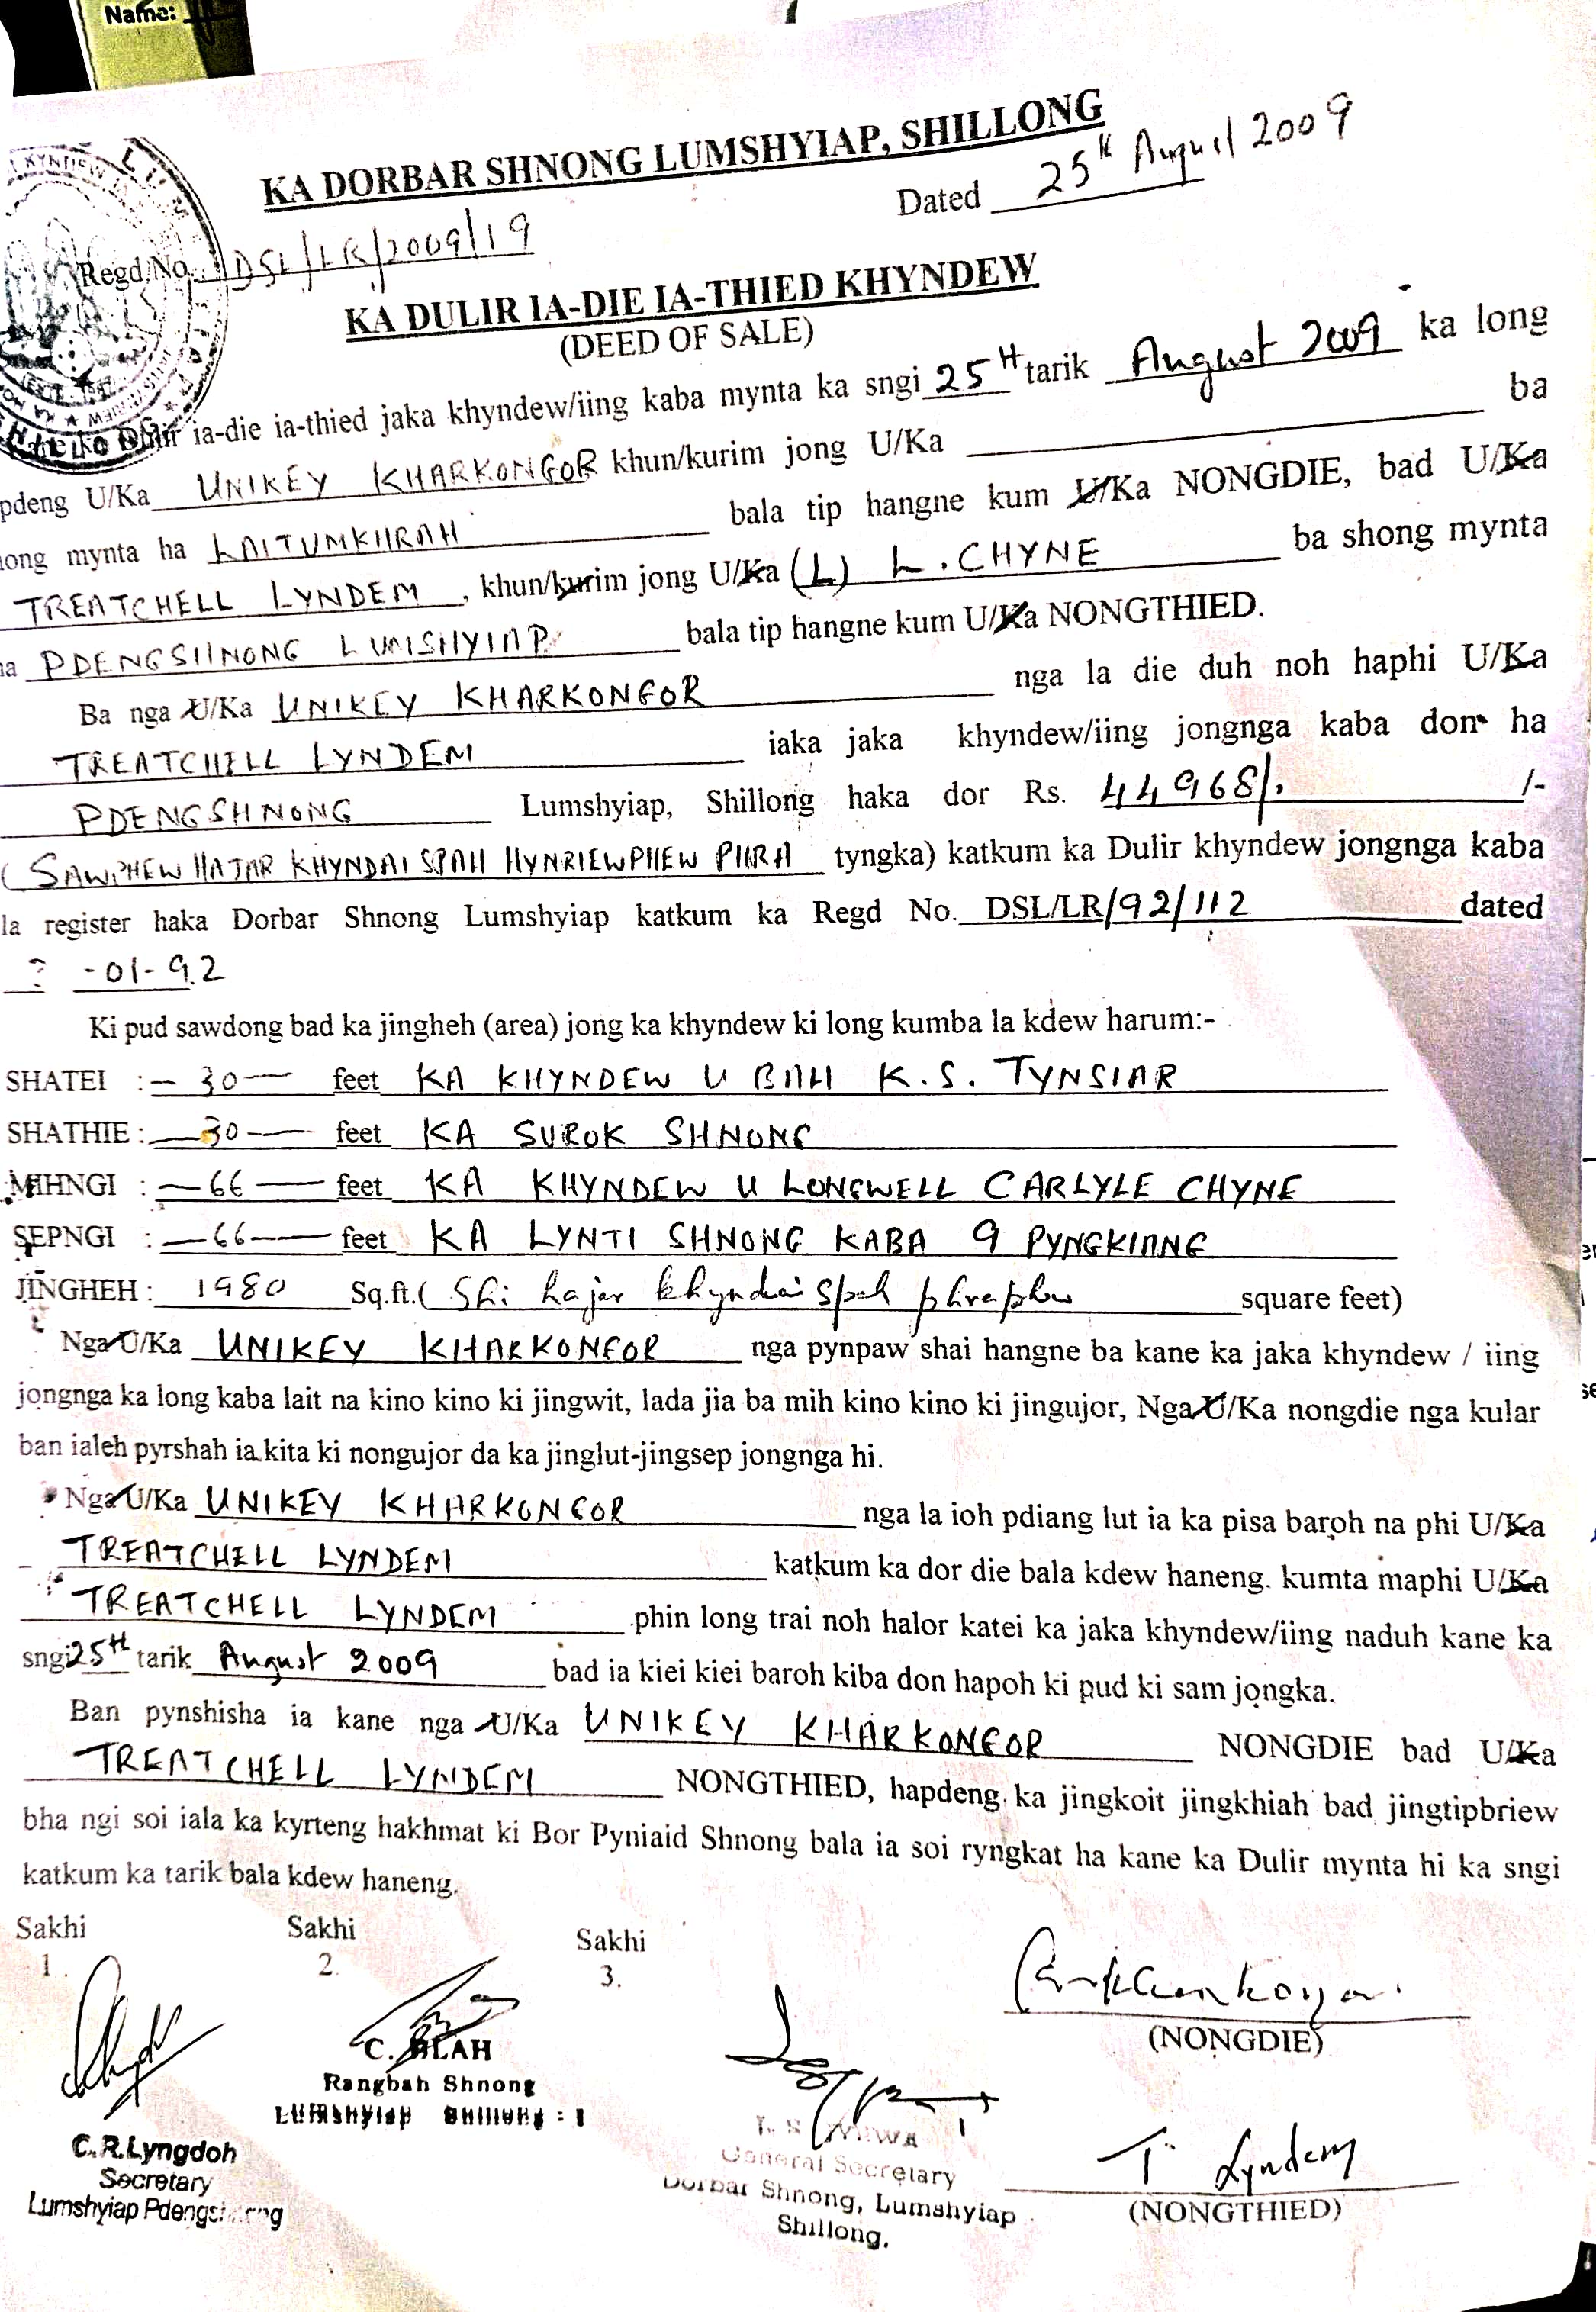 Name:
KA DORBAR SHNONG LUMSHYIAP, SHILLONG
Dated 25th August 2009
Regd No. DSL/LR/2009/19
KA DULIR IA-DIE IA-THIED KHYNDEW
(DEED OF SALE)
ia-die ia-thied jaka khyndew/iing kaba mynta ka sngi 25th tarik August 2009 ka long
pdeng U/Ka UNIKEY KHARKONGOR khun/kurim jong U/Ka ba
ong mynta ha LAITUMKHRAH bala tip hangne kum U/Ka NONGDIE, bad U/Ka
TREATCHELL LYNDEM, khun/kurim jong U/Ka (L) L. CHYNE ba shong mynta
PDENGSHNONG LUMSHYIAP bala tip hangne kum U/Ka NONGTHIED.
Ba nga U/Ka UNIKEY KHARKONGOR nga la die duh noh haphi U/Ka
TREATCHELL LYNDEM iaka jaka khyndew/iing jongnga kaba don ha
PDENGSHNONG Lumshyiap, Shillong haka dor Rs. 44968/. /-
(SAWPHEW HAJAR KHYNDAI SPAH HYNRIEWPHEW PHRA tyngka) katkum ka Dulir khyndew jongnga kaba
la register haka Dorbar Shnong Lumshyiap katkum ka Regd No. DSL/LR/92/112 dated
? -01-92
Ki pud sawdong bad ka jingheh (area) jong ka khyndew ki long kumba la kdew harum:-
SHATEI :- 30 — feet KA KHYNDEW U BAH K.S. TYNSIAR
SHATHIE : — 30 — feet KA SUROK SHNONG
MIHNGI : — 66 — feet KA KHYNDEW U LONGWELL CARLYLE CHYNE
SEPNGI : — 66 — feet KA LYNTI SHNONG KABA 9 PYNGKIANG
JINGHEH : 1980 Sq.ft.( Shi hajar khyndai spah phraphew square feet)
Nga U/Ka UNIKEY KHARKONGOR nga pynpaw shai hangne ba kane ka jaka khyndew / iing
jongnga ka long kaba lait na kino kino ki jingwit, lada jia ba mih kino kino ki jingujor, Nga U/Ka nongdie nga kular
ban ialeh pyrshah ia kita ki nongujor da ka jinglut-jingsep jongnga hi.
Nga U/Ka UNIKEY KHARKONGOR nga la ioh pdiang lut ia ka pisa baroh na phi U/Ka
TREATCHELL LYNDEM katkum ka dor die bala kdew haneng. kumta maphi U/Ka
TREATCHELL LYNDEM phin long trai noh halor katei ka jaka khyndew/iing naduh kane ka
sngi 25th tarik August 2009 bad ia kiei kiei baroh kiba don hapoh ki pud ki sam jongka.
Ban pynshisha ia kane nga U/Ka UNIKEY KHARKONGOR NONGDIE bad U/Ka
TREATCHELL LYNDEM NONGTHIED, hapdeng ka jingkoit jingkhiah bad jingtipbriew
bha ngi soi iala ka kyrteng hakhmat ki Bor Pyniaid Shnong bala ia soi ryngkat ha kane ka Dulir mynta hi ka sngi
katkum ka tarik bala kdew haneng.
Sakhi Sakhi Sakhi
1. 2. 3.
(NONGDIE)
C. BLAH
Rangbah Shnong
Lumshyiap Shillong : 1
C.R.Lyngdoh
Secretary
Lumshyiap Pdengshnong
General Secretary
Dorbar Shnong, Lumshyiap
Shillong.
T. Lyndem
(NONGTHIED)